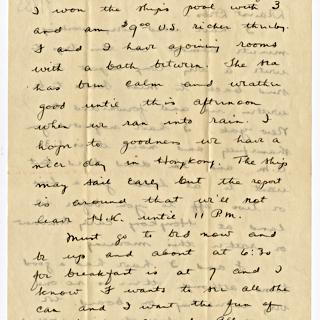 I won the ship's pool with 3
and am $9.00 U.S. richer thereby.
F and I have ajoining rooms
with a bath between. The sea
has been calm and weather
good until this afternoon
when we ran into rain. I
hope to goodness we have a
nice day in Hongkong. The ship
may sail early but the report
is around that we'll not
leave H.K. until 11 P.M.
Must go to bed now and
be up and about at 6:30
for breakfast is at 7 and I
know F wants to see all she
can and I want the fun of